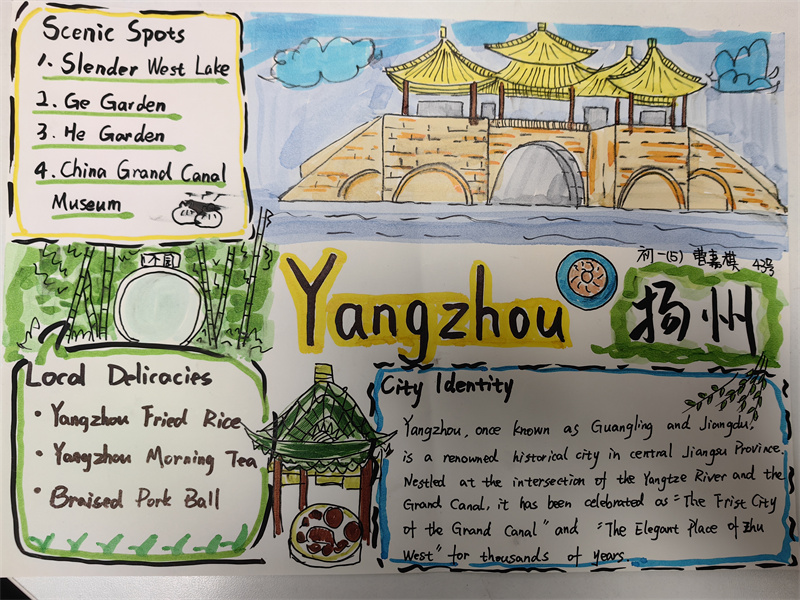 Scenic Spots
1. Slender West Lake
2. Ge Garden
3. He Garden
4. China Grand Canal
Museum
个园
Yangzhou
初一(5) 曹嘉模 43号
扬州
Local Delicacies
· Yangzhou Fried Rice
· Yangzhou Morning Tea
· Braised Pork Ball
City Identity
Yangzhou, once known as Guangling and Jiangdu,
is a renowned historical city in central Jiangsu Province.
Nestled at the intersection of the Yangtze River and the
Grand Canal, it has been celebrated as "The Frist City
of the Grand Canal" and "The Elegant Place of Zhu
West" for thousands of years.